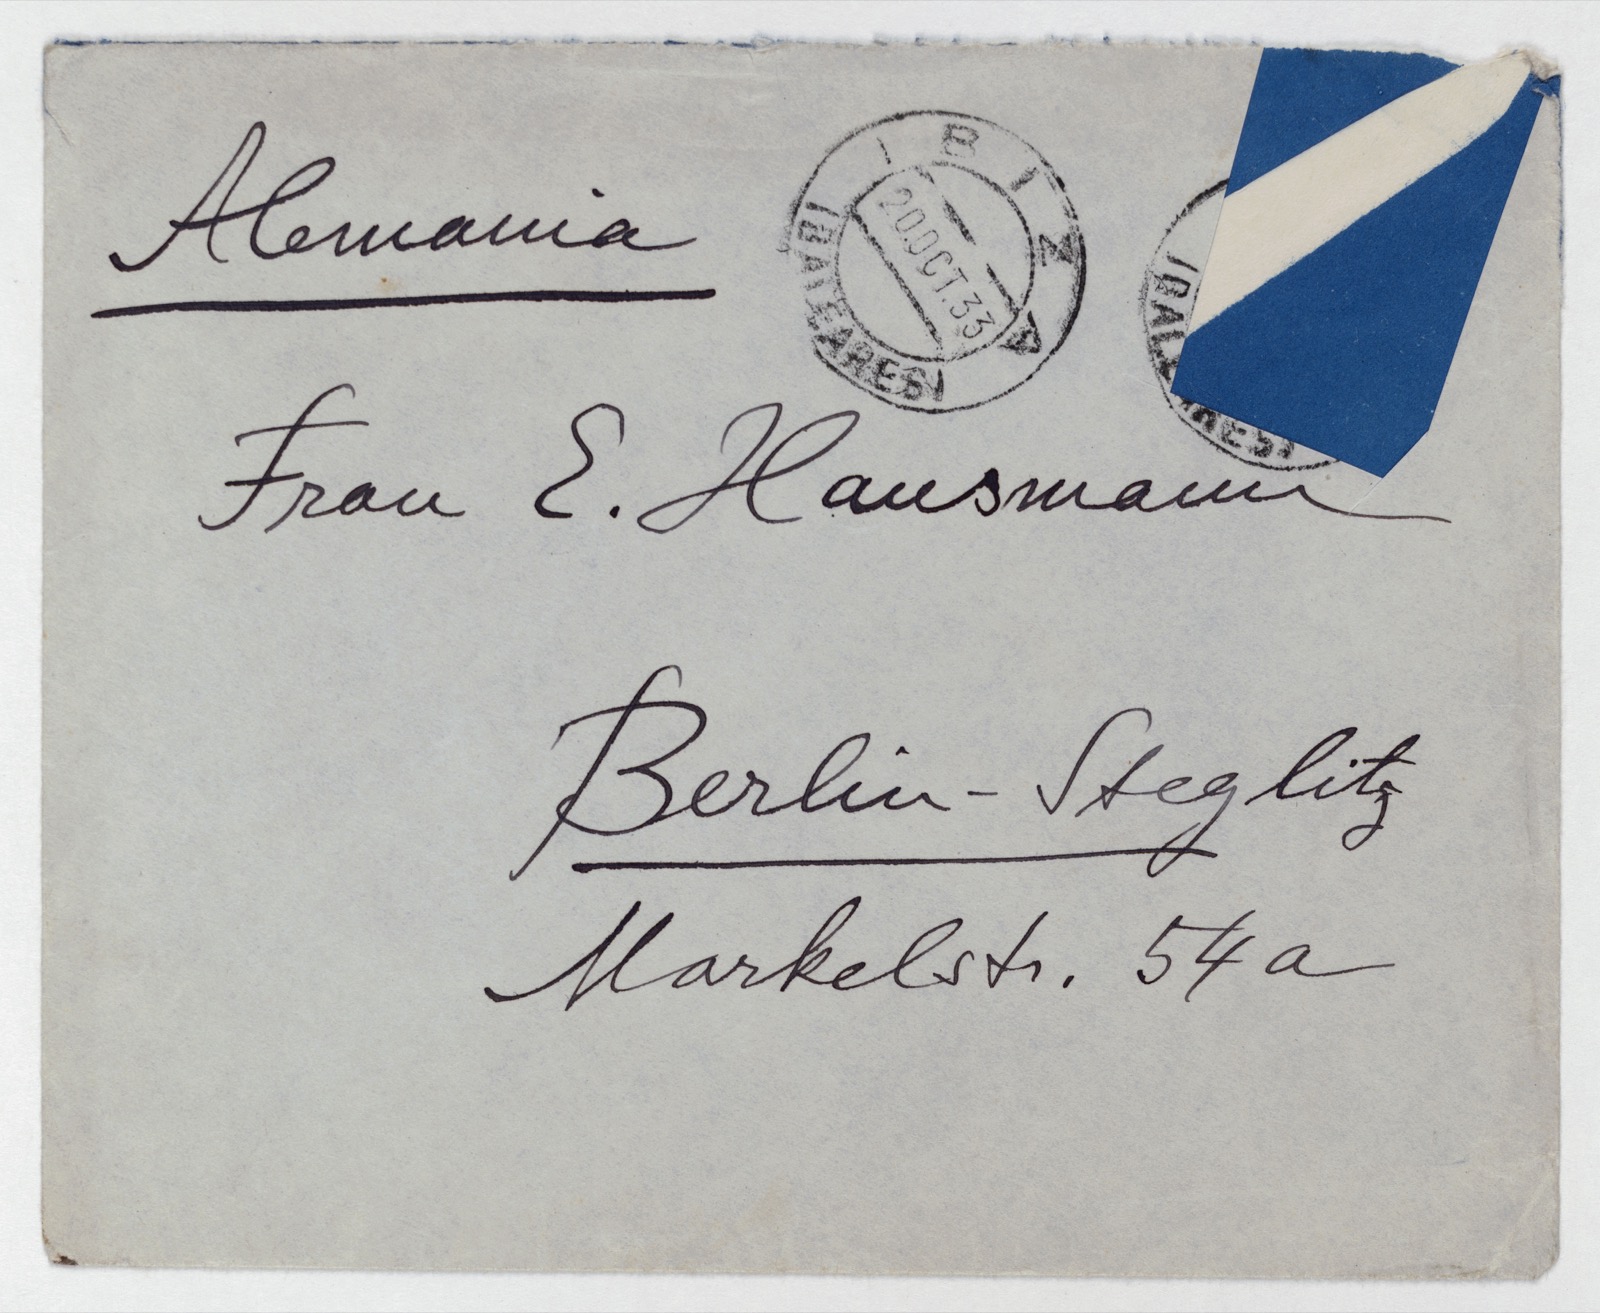 Alemania
IBIZA
20.OCT.33
(BALEARES)
Frau E. Hausmann
Berlin-Steglitz
Markelstr. 54a